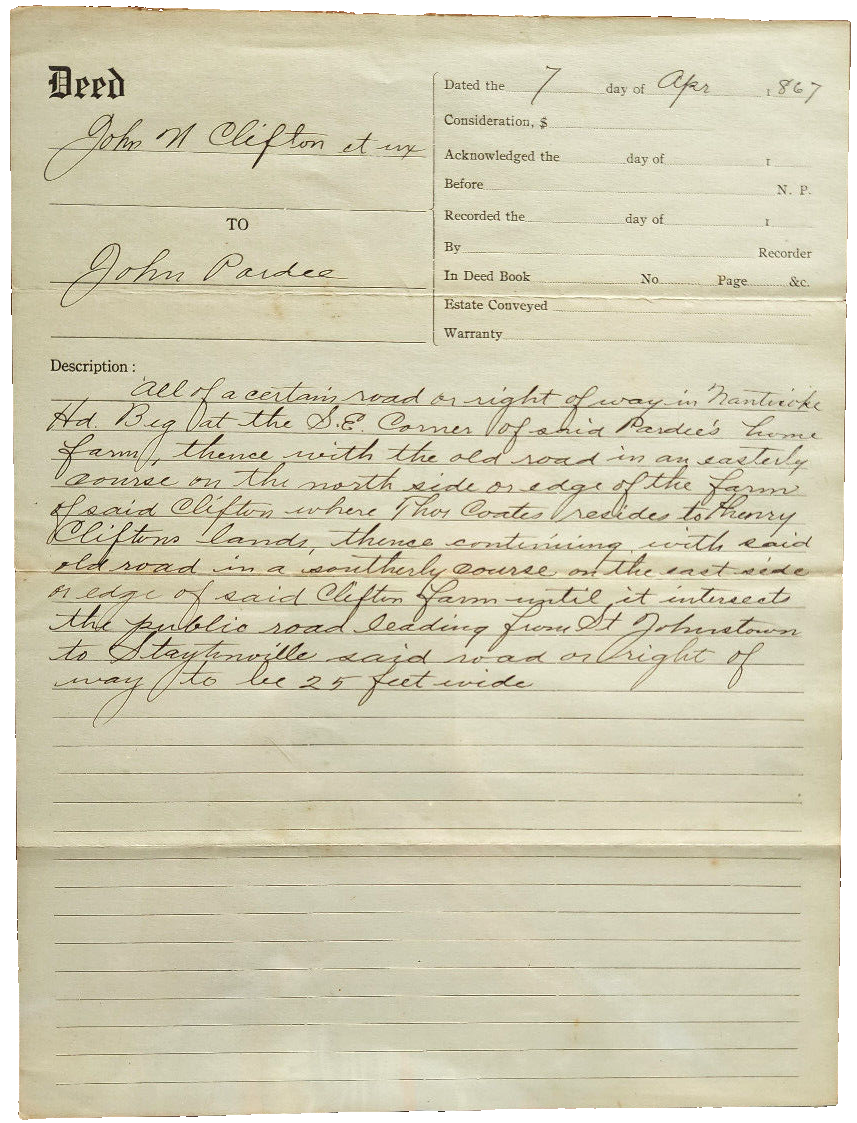 Deed
John N Clifton et ux
TO
John Pardee
Dated the 7 day of Apr 1867
Consideration, $
Acknowledged the day of 1
Before N. P.
Recorded the day of 1
By Recorder
In Deed Book No. Page &c.
Estate Conveyed
Warranty
Description:
All of a certain road or right of way in Nanticoke
Hd. Beg at the S.E. Corner of said Pardee's home
farm, thence with the old road in an easterly
course on the north side or edge of the farm
of said Clifton where Thos Coates resides to Henry
Cliftons lands, thence continuing with said
old road in a southerly course on the east side
or edge of said Clifton farm until it intersects
the public road leading from St Johnstown
to Staytonville said road or right of
way to be 25 feet wide